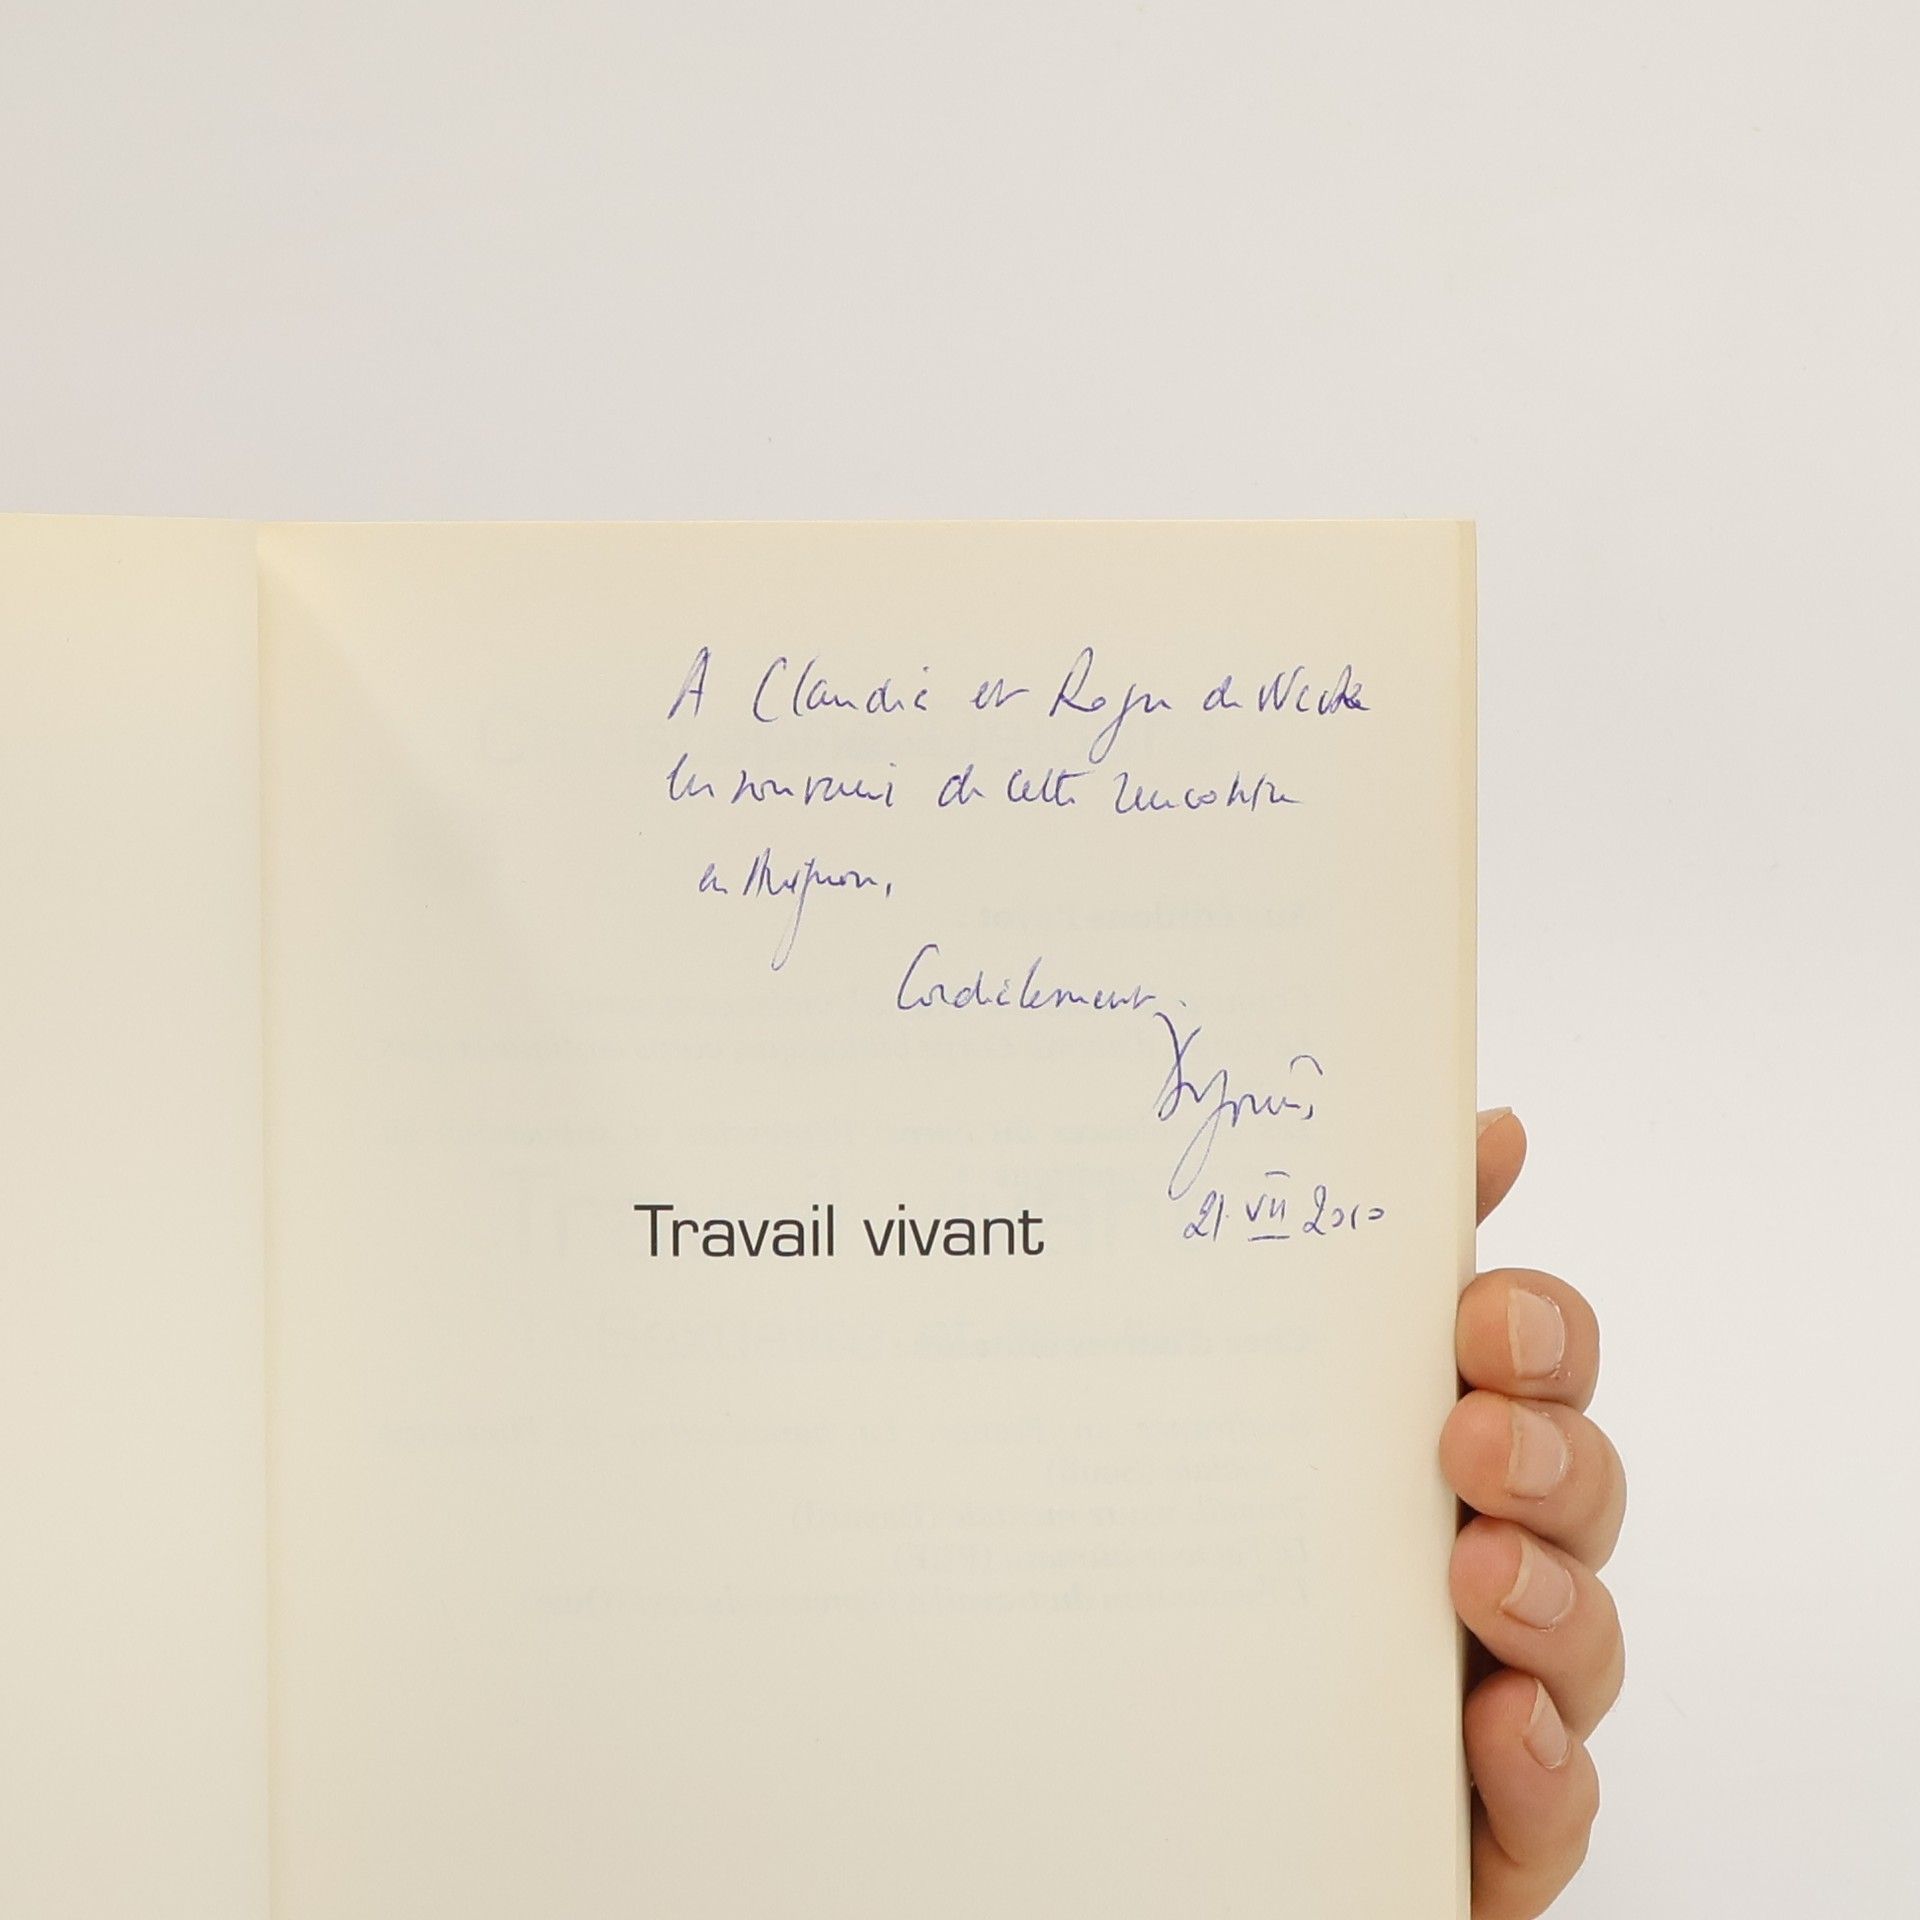 A Claudie et Roger de
en souvenir de cette rencontre
en Avignon,
Cordialement.
21. VII 2010
Travail vivant